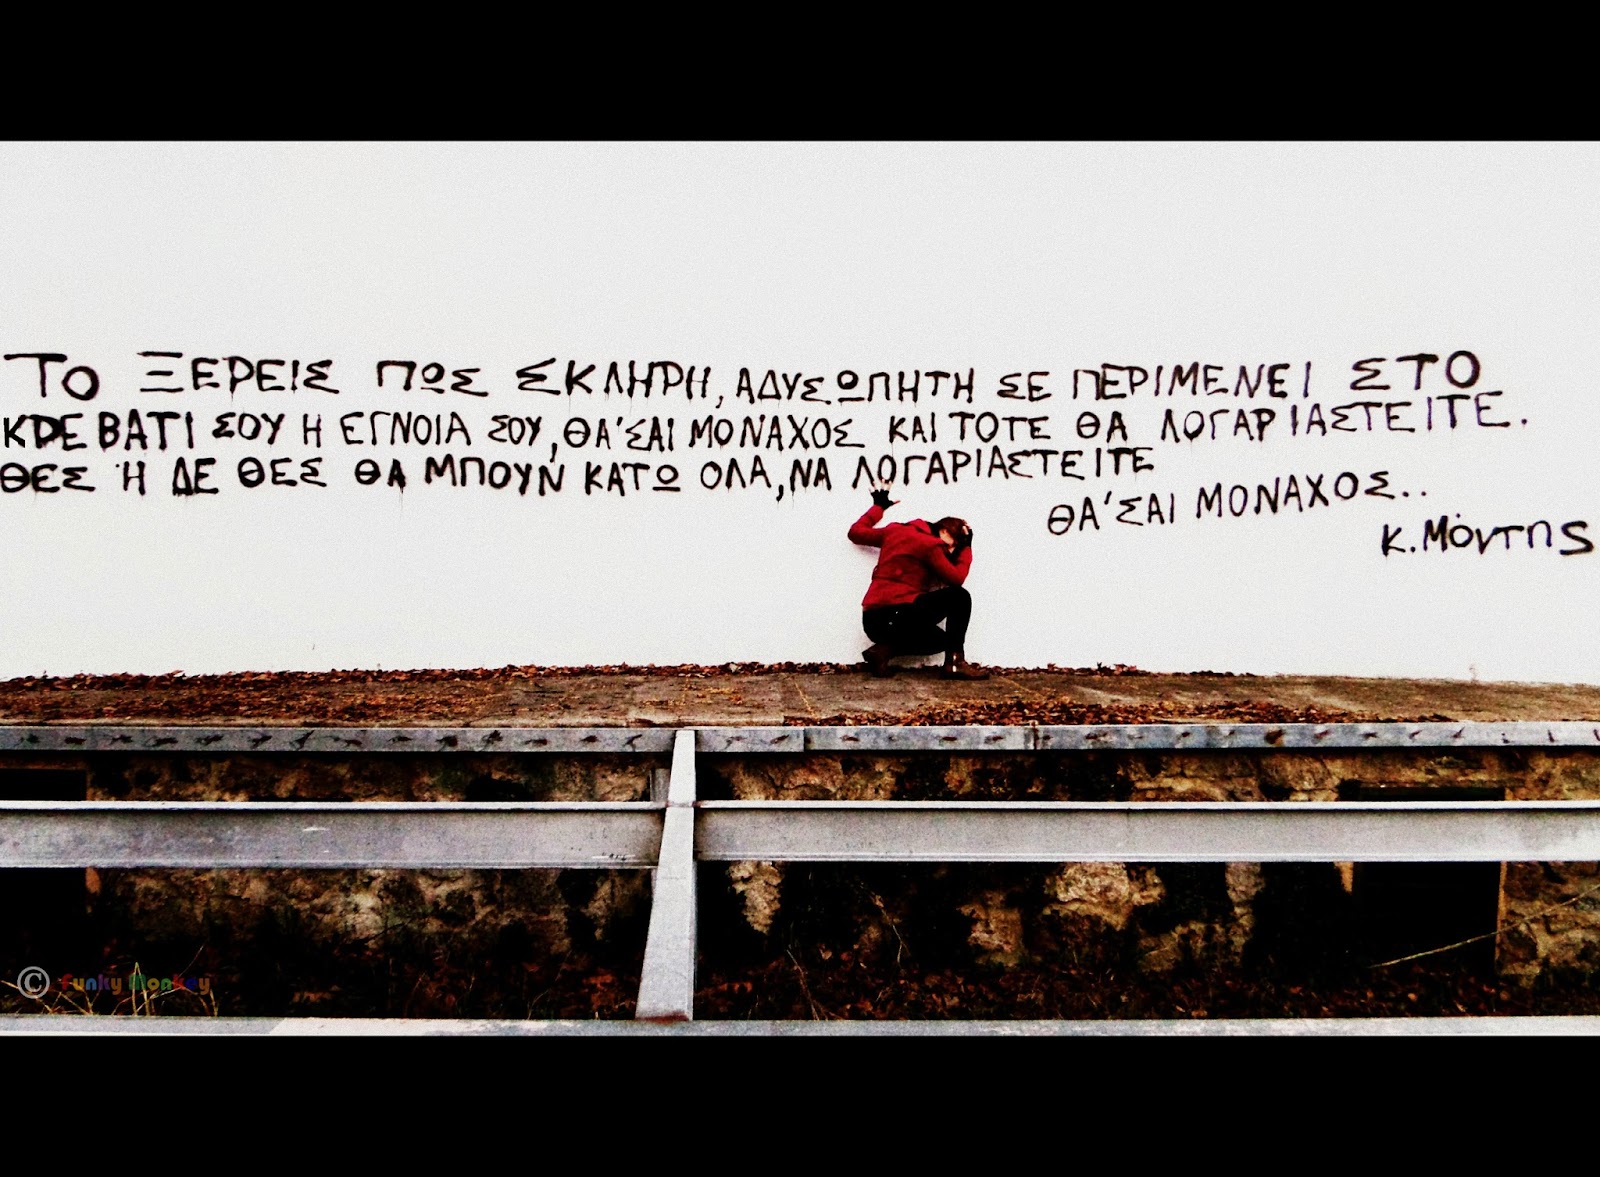 ΤΟ ΞΕΡΕΙΣ ΠΩΣ ΣΚΛΗΡΗ, ΑΔΥΣΩΠΗΤΗ ΣΕ ΠΕΡΙΜΕΝΕΙ ΣΤΟ
ΚΡΕΒΑΤΙ ΣΟΥ Η ΕΓΝΟΙΑ ΣΟΥ, ΘΑ'ΣΑΙ ΜΟΝΑΧΟΣ ΚΑΙ ΤΟΤΕ ΘΑ ΛΟΓΑΡΙΑΣΤΕΙΤΕ.
ΘΕΣ Ή ΔΕ ΘΕΣ ΘΑ ΜΠΟΥΝ ΚΑΤΩ ΟΛΑ, ΝΑ ΛΟΓΑΡΙΑΣΤΕΙΤΕ
ΘΑ'ΣΑΙ ΜΟΝΑΧΟΣ..
Κ. Μόντης
© Funky Monkey